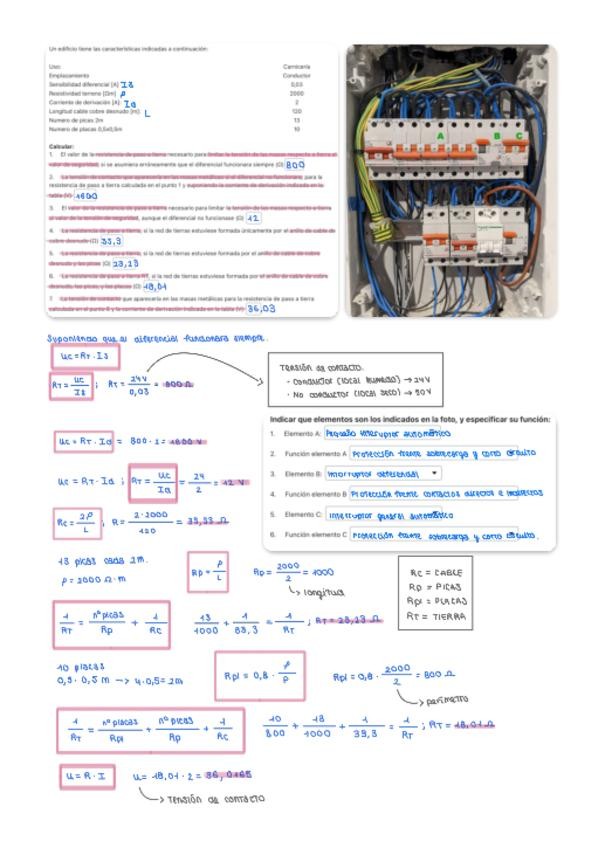 Un edificio tiene las características indicadas a continuación:
Uso: Carnicería
Emplazamiento Conductor
Sensibilidad diferencial [A] IΔ 0,03
Resistividad terreno [Ωm] ρ 2000
Corriente de derivación [A]: Id 2
Longitud cable cobre desnudo [m]: L 120
Numero de picas 2m 13
Numero de placas 0,5x0,5m 10
Calcular:
1. El valor de la resistencia de paso a tierra necesario para limitar la tensión de las masas respecto a tierra al valor de seguridad, si se asumiera erróneamente que el diferencial funcionara siempre (Ω) 800
2. La tensión de contacto que aparecería en las masas metálicas si el diferencial no funcionase, para la
resistencia de paso a tierra calculada en el punto 1 y suponiendo la corriente de derivación indicada en la
tabla (V) 1600
3. El valor de la resistencia de paso a tierra necesario para limitar la tensión de las masas respecto a tierra
al valor de la tensión de seguridad, aunque el diferencial no funcionase (Ω) 12
4. La resistencia de paso a tierra, si la red de tierras estuviese formada únicamente por el anillo de cable de
cobre desnudo (Ω) 33,3
5. La resistencia de paso a tierra, si la red de tierras estuviese formada por el anillo de cable de cobre
desnudo y las picas (Ω) 23,23
6. La resistencia de paso a tierra RT, si la red de tierras estuviese formada por el anillo de cable de cobre
desnudo, las picas, y las placas (Ω) 18,01
7. La tensión de contacto que aparecería en las masas metálicas para la resistencia de paso a tierra
calculada en el punto 6 y la corriente de derivación indicada en la tabla (V) 36,03
A B C
Suponiendo que el diferencial funcionara siempre.
Uc = RT · IΔ
RT = Uc/IΔ ; RT = 24V/0,03 = 800 Ω
TENSIÓN DE CONTACTO.
· CONDUCTOR (LOCAL HÚMEDO) → 24V
· NO CONDUCTOR (LOCAL SECO) → 50V
Indicar que elementos son los indicados en la foto, y especificar su función:
1. Elemento A: Pequeño interruptor automático
2. Función elemento A Protección frente sobrecarga y corto circuito
3. Elemento B: Interruptor diferencial
4. Función elemento B Protección frente contactos directos e indirectos
5. Elemento C: Interruptor general automático
6. Función elemento C Protección frente sobrecarga y corto circuito.
Uc = RT · Id = 800 · 2 = 1600 V
Uc = RT · Id ; RT = Uc/Id = 24/2 = 12 V
Rc = 2ρ/L ; R = 2·2000/120 = 33,33 Ω
13 picas cada 2m.
ρ = 2000 Ω · m
Rp = ρ/L
Rp = 2000/2 = 1000
↳ longitud
RC = CABLE
Rp = PICAS
Rpl = PLACAS
RT = TIERRA
1/RT = nº picas/Rp + 1/Rc
13/1000 + 1/33,3 = 1/RT ; RT = 23,23 Ω
10 placas
0,5 · 0,5 m → 4·0,5 = 2m
Rpl = 0,8 · ρ/P
Rpl = 0,8 · 2000/2 = 800 Ω
→ perímetro
1/RT = nº placas/Rpl + nº picas/Rp + 1/Rc
10/800 + 13/1000 + 1/33,3 = 1/RT ; RT = 18,01 Ω
U = R · I
U = 18,01 · 2 = 36,0165
→ TENSIÓN DE CONTACTO